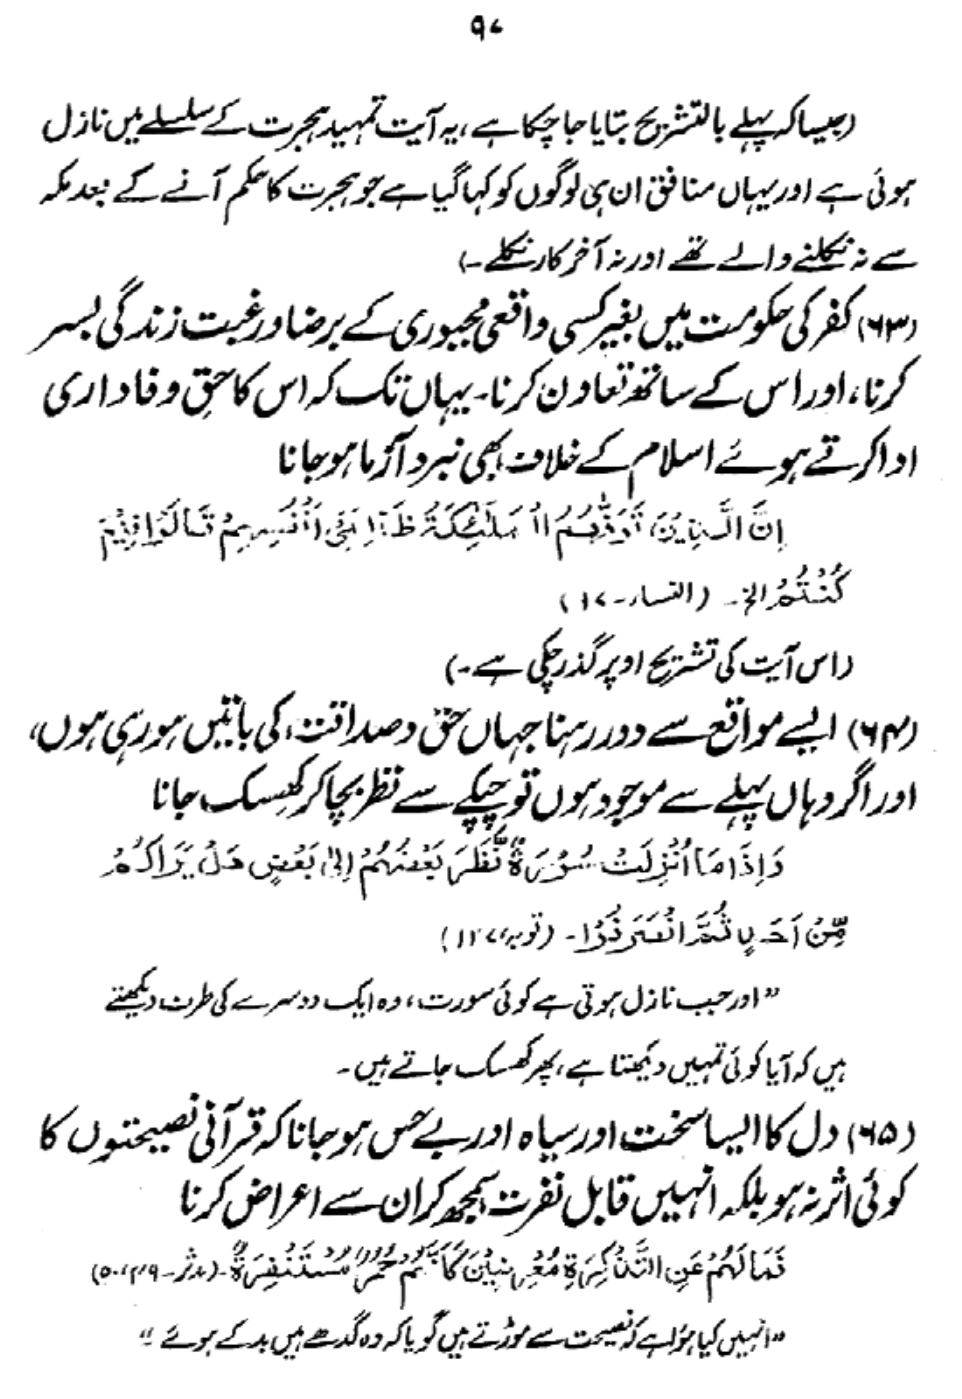 ۹۷
(جیسا کہ پہلے بالتشریح بتایا جا چکا ہے، یہ آیت تمہید ہجرت کے سلسلے میں نازل
ہوئی ہے اور یہاں منافق ان ہی لوگوں کو کہا گیا ہے جو ہجرت کا حکم آنے کے بعد مکہ
سے نہ نکلنے والے تھے اور نہ آخر کار نکلے۔)
(۶۳) کفر کی حکومت میں بغیر کسی واقعی مجبوری کے برضا و رغبت زندگی بسر
کرنا، اور اس کے ساتھ تعاون کرنا۔ یہاں تک کہ اس کا حق وفاداری
ادا کرتے ہوئے اسلام کے خلاف بھی نبرد آزما ہو جانا
اِنَّ الَّذِيْنَ تَوَفّٰهُمُ الْمَلٰٓئِكَةُ ظَالِمِيْٓ اَنْفُسِهِمْ قَالُوْا فِيْمَ
كُنْتُمْ الخ۔ (النساء۔ ۹۷)
(اس آیت کی تشریح اوپر گذر چکی ہے۔)
(۶۴) ایسے مواقع سے دور رہنا جہاں حق و صداقت کی باتیں ہو رہی ہوں،
اور اگر وہاں پہلے سے موجود ہوں تو چپکے سے نظر بچا کر کھسک جانا
وَاِذَا مَا اُنْزِلَتْ سُوْرَةٌ نَّظَرَ بَعْضُهُمْ اِلٰى بَعْضٍ هَلْ يَرَاكُمْ
مِّنْ اَحَدٍ ثُمَّ انْصَرَفُوْا۔ (توبہ، ۱۲۷)
”اور جب نازل ہوتی ہے کوئی سورت، وہ ایک دوسرے کی طرف دیکھتے
ہیں کہ آیا کوئی تمہیں دیکھتا ہے، پھر کھسک جاتے ہیں۔
(۶۵) دل کا ایسا سخت اور سیاہ اور بے حس ہو جانا کہ قرآنی نصیحتوں کا
کوئی اثر نہ ہو بلکہ انہیں قابل نفرت سمجھ کر ان سے اعراض کرنا
فَمَا لَهُمْ عَنِ التَّذْكِرَةِ مُعْرِضِيْنَ كَاَنَّهُمْ حُمُرٌ مُّسْتَنْفِرَةٌ۔ (مدثر۔ ۴۹، ۵۰)
”انہیں کیا ہوا ہے کہ نصیحت سے موڑتے ہیں گویا کہ وہ گدھے ہیں بدکے ہوئے“